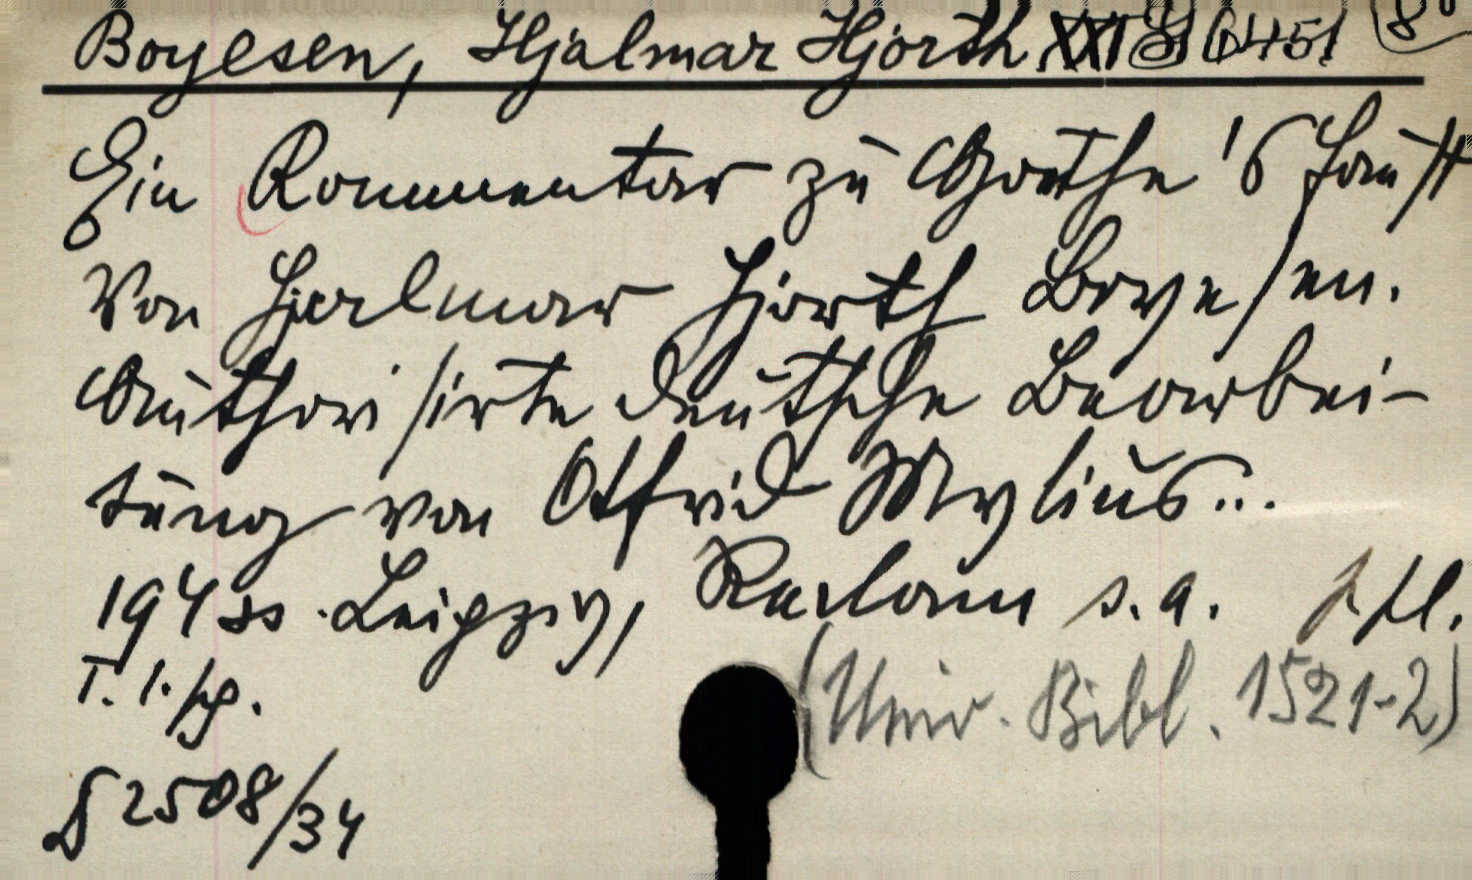 Boyesen, Hjalmar Hjorth XXI 6451 8°
Ein Kommentar zu Goethe's Faust
Von Hjalmar Hjorth Boyesen.
Authorisirte deutsche Bearbei-
tung von Otfrid Mylius...
194 SS. Leipzig, Reclam s.a.
(Univ. Bibl. 1521-2)
2508/34